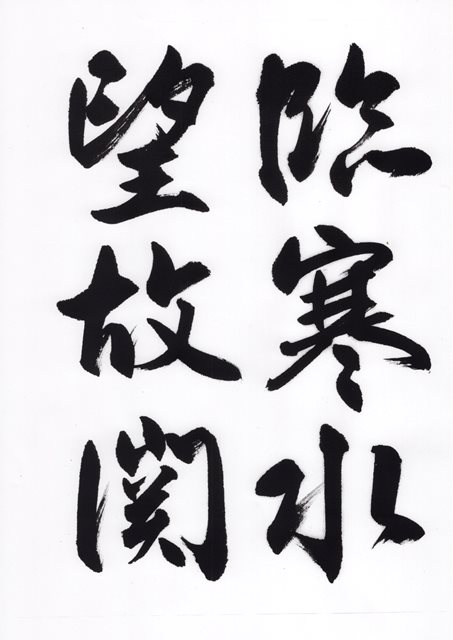 臨寒水
望故関